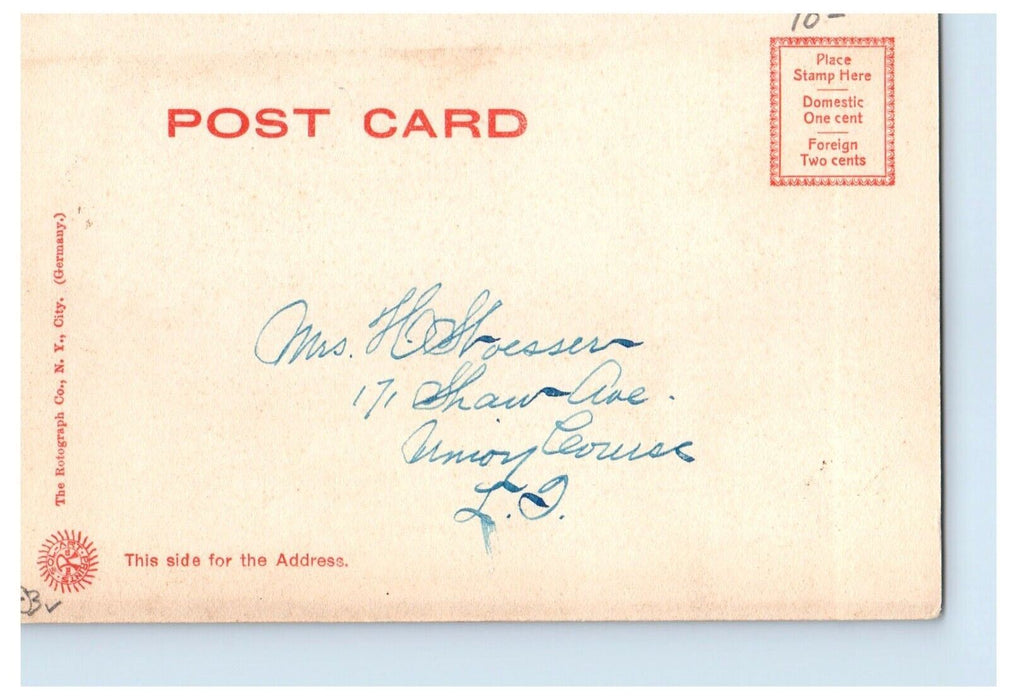 10-
POST CARD
Place
Stamp Here
Domestic
One cent
Foreign
Two cents
The Rotograph Co., N. Y., City. (Germany.)
Mrs. H. Stoesser
171 Shaw Ave.
Union Course
L. I.
This side for the Address.